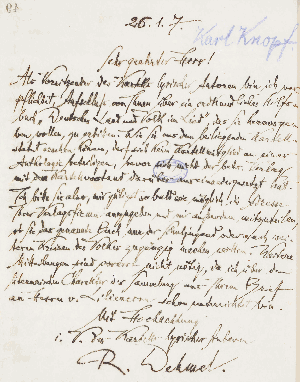 26.1.7.
Karl Knopf
Sehr geehrter Herr!
Als Vorsitzender des Kartells lyrischer Autoren bin ich ver-
pflichtet, Aufschluß von Ihnen über ein
buch, „Deutsch Land und Volk im Lied", das Sie herausge-
ben wollen, zu erbitten. Wie Sie aus dem beiliegenden Kartell-
statut ersehen können, darf sich kein Kartellmitglied an einer
Anthologie beteiligen, bevor sich nicht der betr.
mit dem Kartellvorstand darüber auseinandergesetzt hat.
Ich bitte Sie also, mir gütigst
Ihre Verlagsfirma anzugeben und mir außerdem mitzuteilen,
ob Sie das genannte Buch nur der Schuljugend oder auch wei-
teren Kreisen des Volkes zugängig machen wollen. Weitere
Mitteilungen sind nicht nötig, da ich über den
literarischen Charakter der Sammlung aus Ihrem Brief
an Herrn v. Liliencron schon unterrichtet bin.
Mit Hochachtung
i. V. des Kartells lyrischer Autoren
R. Dehmel.